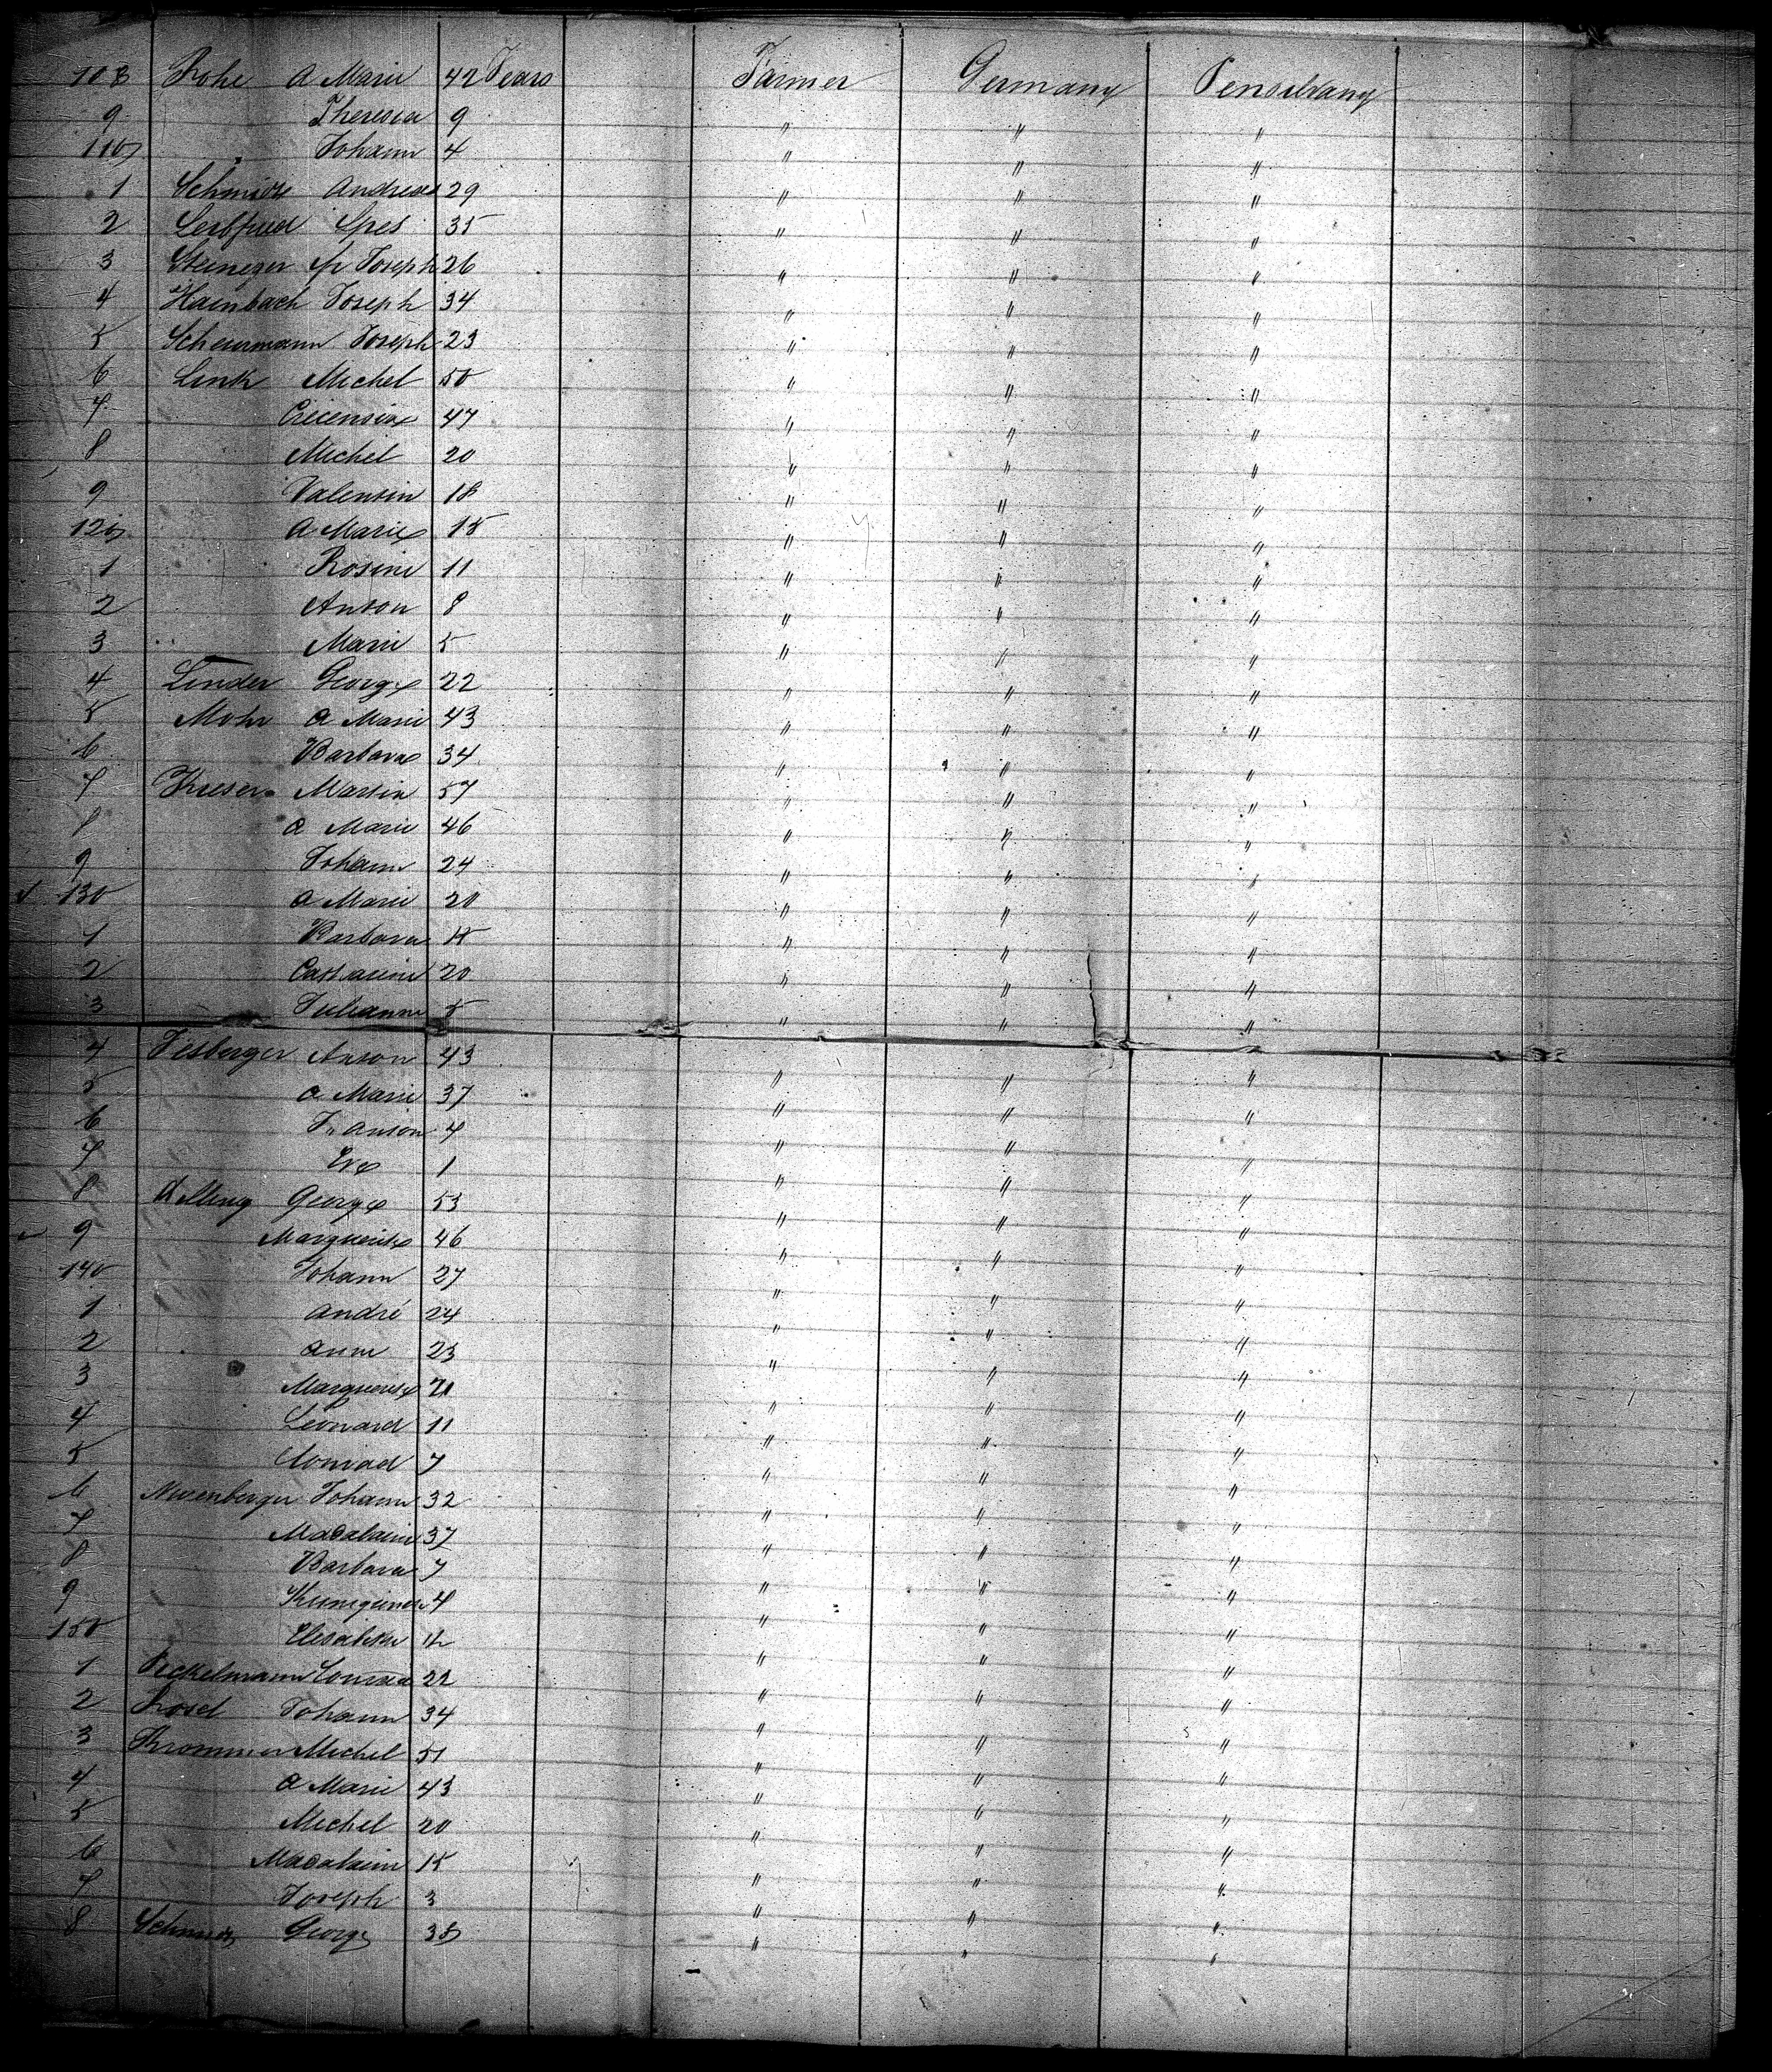 108 Rohe A Marie 42 Years Farmer Germany Pensilvany
9 Theresia 9 " " "
110 Johann 4 " " "
1 Schmidt Andreas 29 " " "
2 Leibfried 35 " " "
3 Joseph 26 " " "
4 Hainbach Joseph 34 " " "
5 Scheuermann Joseph 23 " " "
6 Link Michel 50 " " "
7 Crecensia 47 " " "
8 Michel 20 " " "
9 Valentin 18 " " "
120 A Marie 15 " " "
1 Rosine 11 " " "
2 Anton 8 " " "
3 Marie 5 " " "
4 Linder George 22 " " "
5 Mohr A Marie 43 " " "
6 Barbara 34 " " "
7 Kieser Martin 57 " " "
8 A Marie 46 " " "
9 Johann 24 " " "
130 A Marie 20 " " "
1 Barbara " " "
2 Catharine 20 " " "
3 Julianne 5 " " "
4 Anton 43 " " "
5 A Marie 37 " " "
6 Anton 4 " " "
7 Eve 1 " " "
8 George 53 " " "
9 Marguerite 46 " " "
140 Johann 27 " " "
1 André 24 " " "
2 Anne 23 " " "
3 Marguerite " " "
4 Leonard 11 " " "
5 Conrad 7 " " "
6 Johann 32 " " "
7 Madalaine 37 " " "
8 Barbara 7 " " "
9 4 " " "
150 " " "
1 Conrad 22 " " "
2 Rosel Johann 34 " " "
3 Krommer Michel 51 " " "
4 A Marie 43 " " "
5 Michel 20 " " "
6 Madalaine 15 " " "
7 Joseph 3 " " "
8 Schmidt George " " "